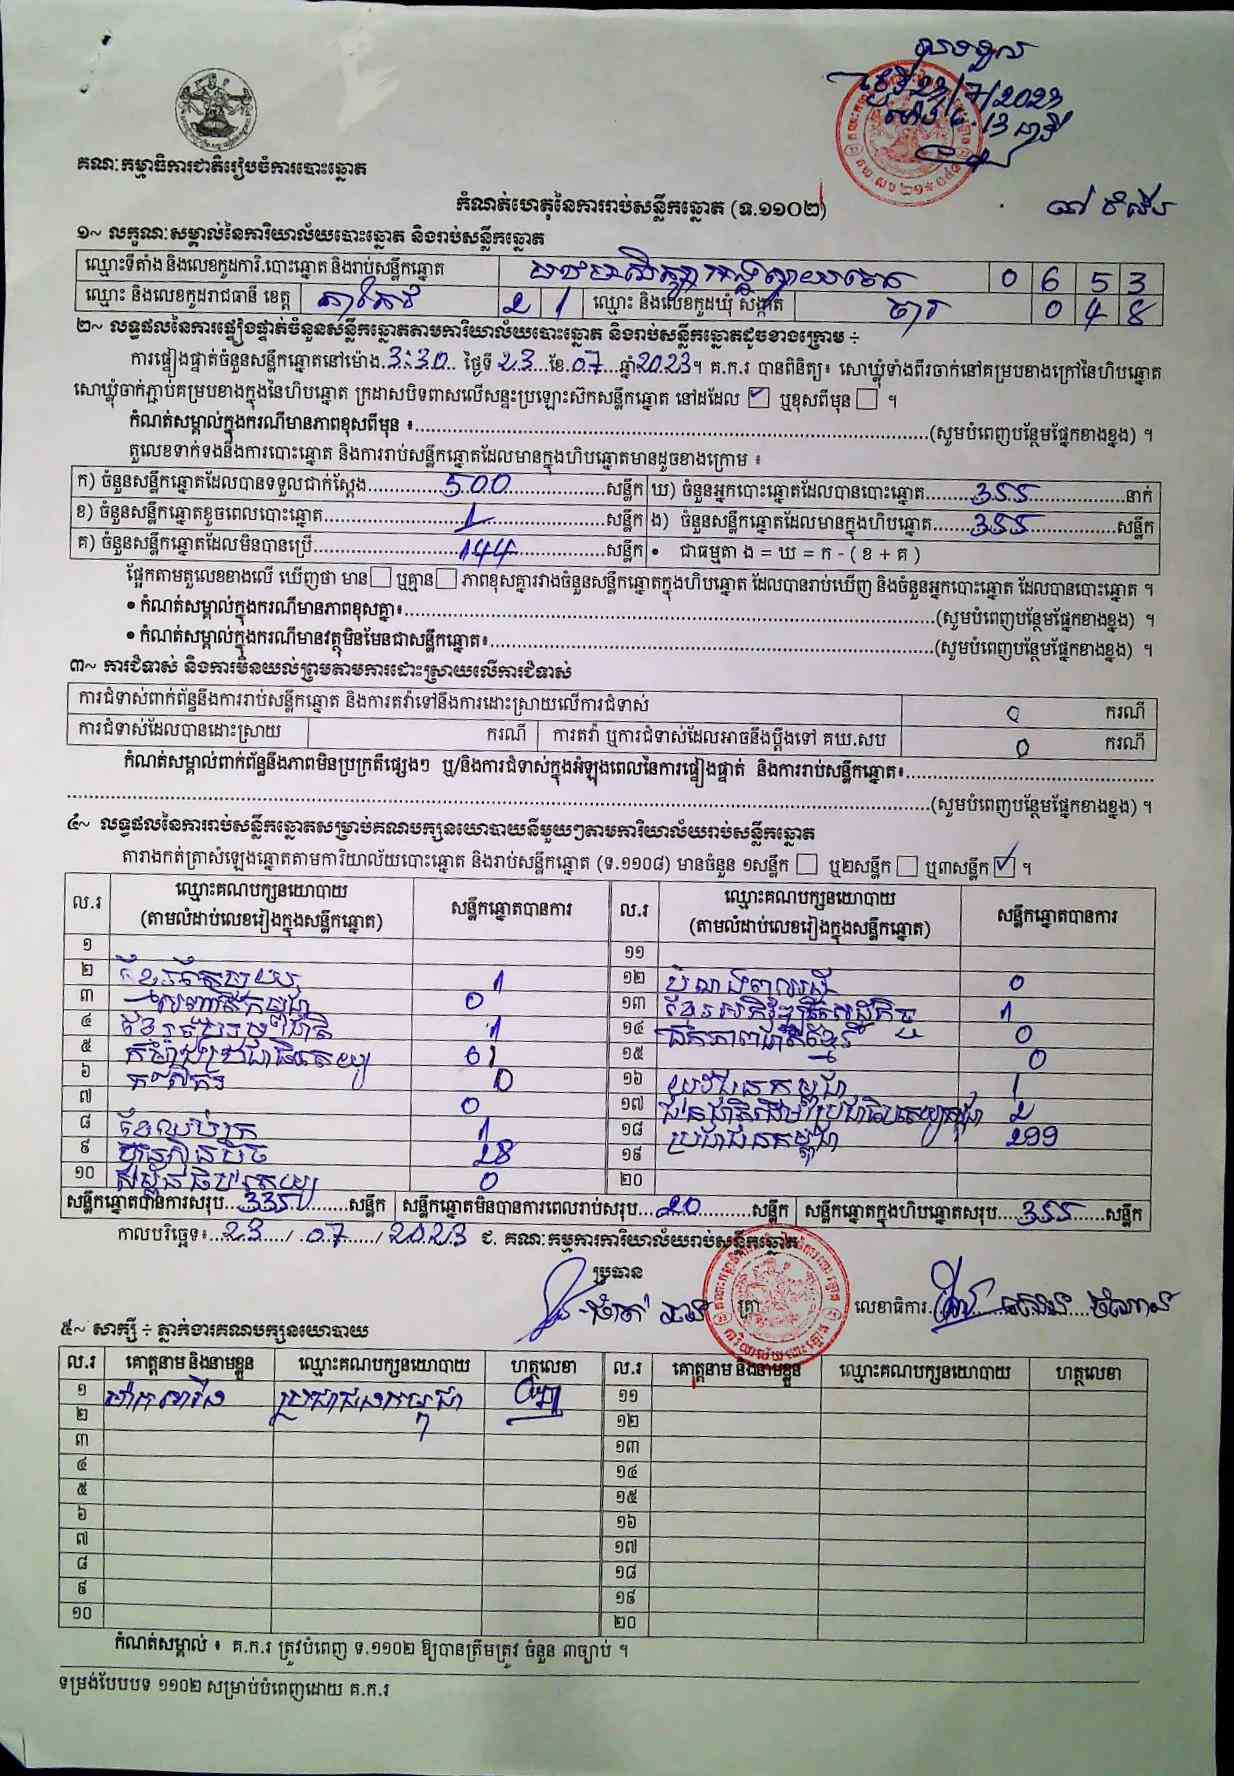 គណៈកម្មាធិការជាតិរៀបចំការបោះឆ្នោត
23/7/2023
កំណត់ហេតុនៃការរាប់សន្លឹកឆ្នោត (ទ.១១០២)
១~ លក្ខណៈសម្គាល់នៃការិយាល័យបោះឆ្នោត និងរាប់សន្លឹកឆ្នោត
ឈ្មោះទីតាំង និងលេខកូដការិ.បោះឆ្នោត និងរាប់សន្លឹកឆ្នោត 0 6 5 3
ឈ្មោះ និងលេខកូដរាជធានី ខេត្ត តាកែវ 2 1 ឈ្មោះ និងលេខកូដឃុំ សង្កាត់ 0 4 8
២~ លទ្ធផលនៃការផ្ទៀងផ្ទាត់ចំនួនសន្លឹកឆ្នោតតាមការិយាល័យបោះឆ្នោត និងរាប់សន្លឹកឆ្នោតដូចខាងក្រោម ÷
ការផ្ទៀងផ្ទាត់ចំនួនសន្លឹកឆ្នោតនៅម៉ោង 3:30 ថ្ងៃទី 23 ខែ 07 ឆ្នាំ 2023។ គ.ក.រ បានពិនិត្យ៖ សោឃ្លុំទាំងពីរចាក់នៅគម្របខាងក្រៅនៃហិបឆ្នោត
សោឃ្លុំចាក់ភ្ជាប់គម្របខាងក្នុងនៃហិបឆ្នោត ក្រដាសបិទពាសលើសន្ទះប្រឡោះស៊កសន្លឹកឆ្នោត នៅដដែល ☑ ឬខុសពីមុន ☐ ។
កំណត់សម្គាល់ក្នុងករណីមានភាពខុសពីមុន ៖ (សូមបំពេញបន្ថែមផ្នែកខាងខ្នង) ។
តួលេខទាក់ទងនឹងការបោះឆ្នោត និងការរាប់សន្លឹកឆ្នោតដែលមានក្នុងហិបឆ្នោតមានដូចខាងក្រោម ៖
ក) ចំនួនសន្លឹកឆ្នោតដែលបានទទួលជាក់ស្តែង 500 សន្លឹក ឃ) ចំនួនអ្នកបោះឆ្នោតដែលបានបោះឆ្នោត 355 នាក់
ខ) ចំនួនសន្លឹកឆ្នោតខូចពេលបោះឆ្នោត 1 សន្លឹក ង) ចំនួនសន្លឹកឆ្នោតដែលមានក្នុងហិបឆ្នោត 355 សន្លឹក
គ) ចំនួនសន្លឹកឆ្នោតដែលមិនបានប្រើ 144 សន្លឹក • ជាធម្មតា ង = ឃ = ក - ( ខ + គ )
ផ្អែកតាមតួលេខខាងលើ ឃើញថា មាន ☐ ឬគ្មាន ☐ ភាពខុសគ្នារវាងចំនួនសន្លឹកឆ្នោតក្នុងហិបឆ្នោត ដែលបានរាប់ឃើញ និងចំនួនអ្នកបោះឆ្នោត ដែលបានបោះឆ្នោត ។
• កំណត់សម្គាល់ក្នុងករណីមានភាពខុសគ្នា៖ (សូមបំពេញបន្ថែមផ្នែកខាងខ្នង) ។
• កំណត់សម្គាល់ក្នុងករណីមានវត្ថុមិនមែនជាសន្លឹកឆ្នោត៖ (សូមបំពេញបន្ថែមផ្នែកខាងខ្នង) ។
៣~ ការជំទាស់ និងការមិនយល់ព្រមតាមការដោះស្រាយលើការជំទាស់
ការជំទាស់ពាក់ព័ន្ធនឹងការរាប់សន្លឹកឆ្នោត និងការតវ៉ាទៅនឹងការដោះស្រាយលើការជំទាស់ 0 ករណី
ការជំទាស់ដែលបានដោះស្រាយ ករណី ការតវ៉ា ឬការជំទាស់ដែលអាចនឹងប្តឹងទៅ គឃ.សប 0 ករណី
កំណត់សម្គាល់ពាក់ព័ន្ធនឹងភាពមិនប្រក្រតីផ្សេងៗ ឬ/និងការជំទាស់ក្នុងអំឡុងពេលនៃការផ្ទៀងផ្ទាត់ និងការរាប់សន្លឹកឆ្នោត៖
(សូមបំពេញបន្ថែមផ្នែកខាងខ្នង) ។
៤~ លទ្ធផលនៃការរាប់សន្លឹកឆ្នោតសម្រាប់គណបក្សនយោបាយនីមួយៗតាមការិយាល័យរាប់សន្លឹកឆ្នោត
តារាងកត់ត្រាសំឡេងឆ្នោតតាមការិយាល័យបោះឆ្នោត និងរាប់សន្លឹកឆ្នោត (ទ.១១០៨) មានចំនួន ១សន្លឹក ☐ ឬ២សន្លឹក ☐ ឬ៣សន្លឹក ☑ ។
ល.រ ឈ្មោះគណបក្សនយោបាយ (តាមលំដាប់លេខរៀងក្នុងសន្លឹកឆ្នោត) សន្លឹកឆ្នោតបានការ ល.រ ឈ្មោះគណបក្សនយោបាយ (តាមលំដាប់លេខរៀងក្នុងសន្លឹកឆ្នោត) សន្លឹកឆ្នោតបានការ
១ ១១
២ 1 ១២ 0
៣ 0 ១៣ 1
៤ 1 ១៤ 0
៥ 01 ១៥ 0
៦ កសិករ 0 ១៦ យុវជនកម្ពុជា 1
៧ 0 ១៧ 2
៨ ខ្មែរឈប់ក្រ 1 ១៨ ប្រជាជនកម្ពុជា 299
៩ ហ្វ៊ុនស៊ិនប៉ិច 28 ១៩
១០ 0 ២០
សន្លឹកឆ្នោតបានការសរុប 335 សន្លឹក សន្លឹកឆ្នោតមិនបានការពេលរាប់សរុប 20 សន្លឹក សន្លឹកឆ្នោតក្នុងហិបឆ្នោតសរុប 355 សន្លឹក
កាលបរិច្ឆេទ៖ 23 / 07 / 2023 ជ. គណៈកម្មការការិយាល័យរាប់សន្លឹកឆ្នោត
ប្រធាន
ត្រា លេខាធិការ
៥~ សាក្សី ÷ ភ្នាក់ងារគណបក្សនយោបាយ
ល.រ គោត្តនាម និងនាមខ្លួន ឈ្មោះគណបក្សនយោបាយ ហត្ថលេខា ល.រ គោត្តនាម និងនាមខ្លួន ឈ្មោះគណបក្សនយោបាយ ហត្ថលេខា
១ ប្រជាជនកម្ពុជា ១១
២ ១២
៣ ១៣
៤ ១៤
៥ ១៥
៦ ១៦
៧ ១៧
៨ ១៨
៩ ១៩
១០ ២០
កំណត់សម្គាល់ ៖ គ.ក.រ ត្រូវបំពេញ ទ.១១០២ ឱ្យបានត្រឹមត្រូវ ចំនួន ៣ច្បាប់ ។
ទម្រង់បែបបទ ១១០២ សម្រាប់បំពេញដោយ គ.ក.រ